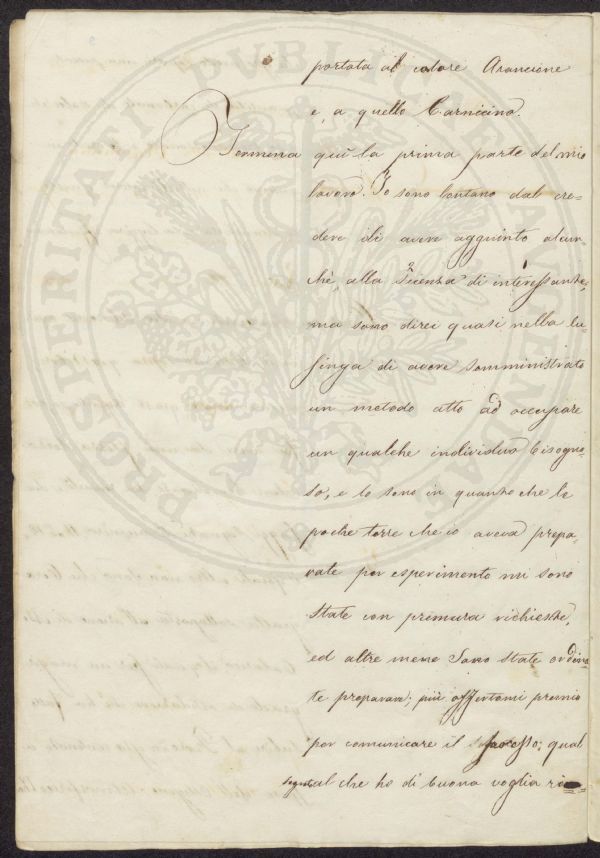 portata al colore Arancione
e, a quello Carnicino.
Termina quì la prima parte del mio
lavoro. Io sono lontano dal cre=
dere di avere aggiunto alcun
chè, alla Scienza di interessante,
ma sono direi quasi nella lu
singa di avere somministrato
un metodo atto ad occupare
un qualche individuo bisogno=
so, e lo sono in quanto che le
poche terre che io aveva prepa=
rate per esperimento mi sono
state con premura richieste,
ed altre mene sono state ordina
te preparare; più offertomi premio
per comunicare il processo; qual
al che ho di buona voglia
PROSPERITATI PVBLICAE AVGENDAE